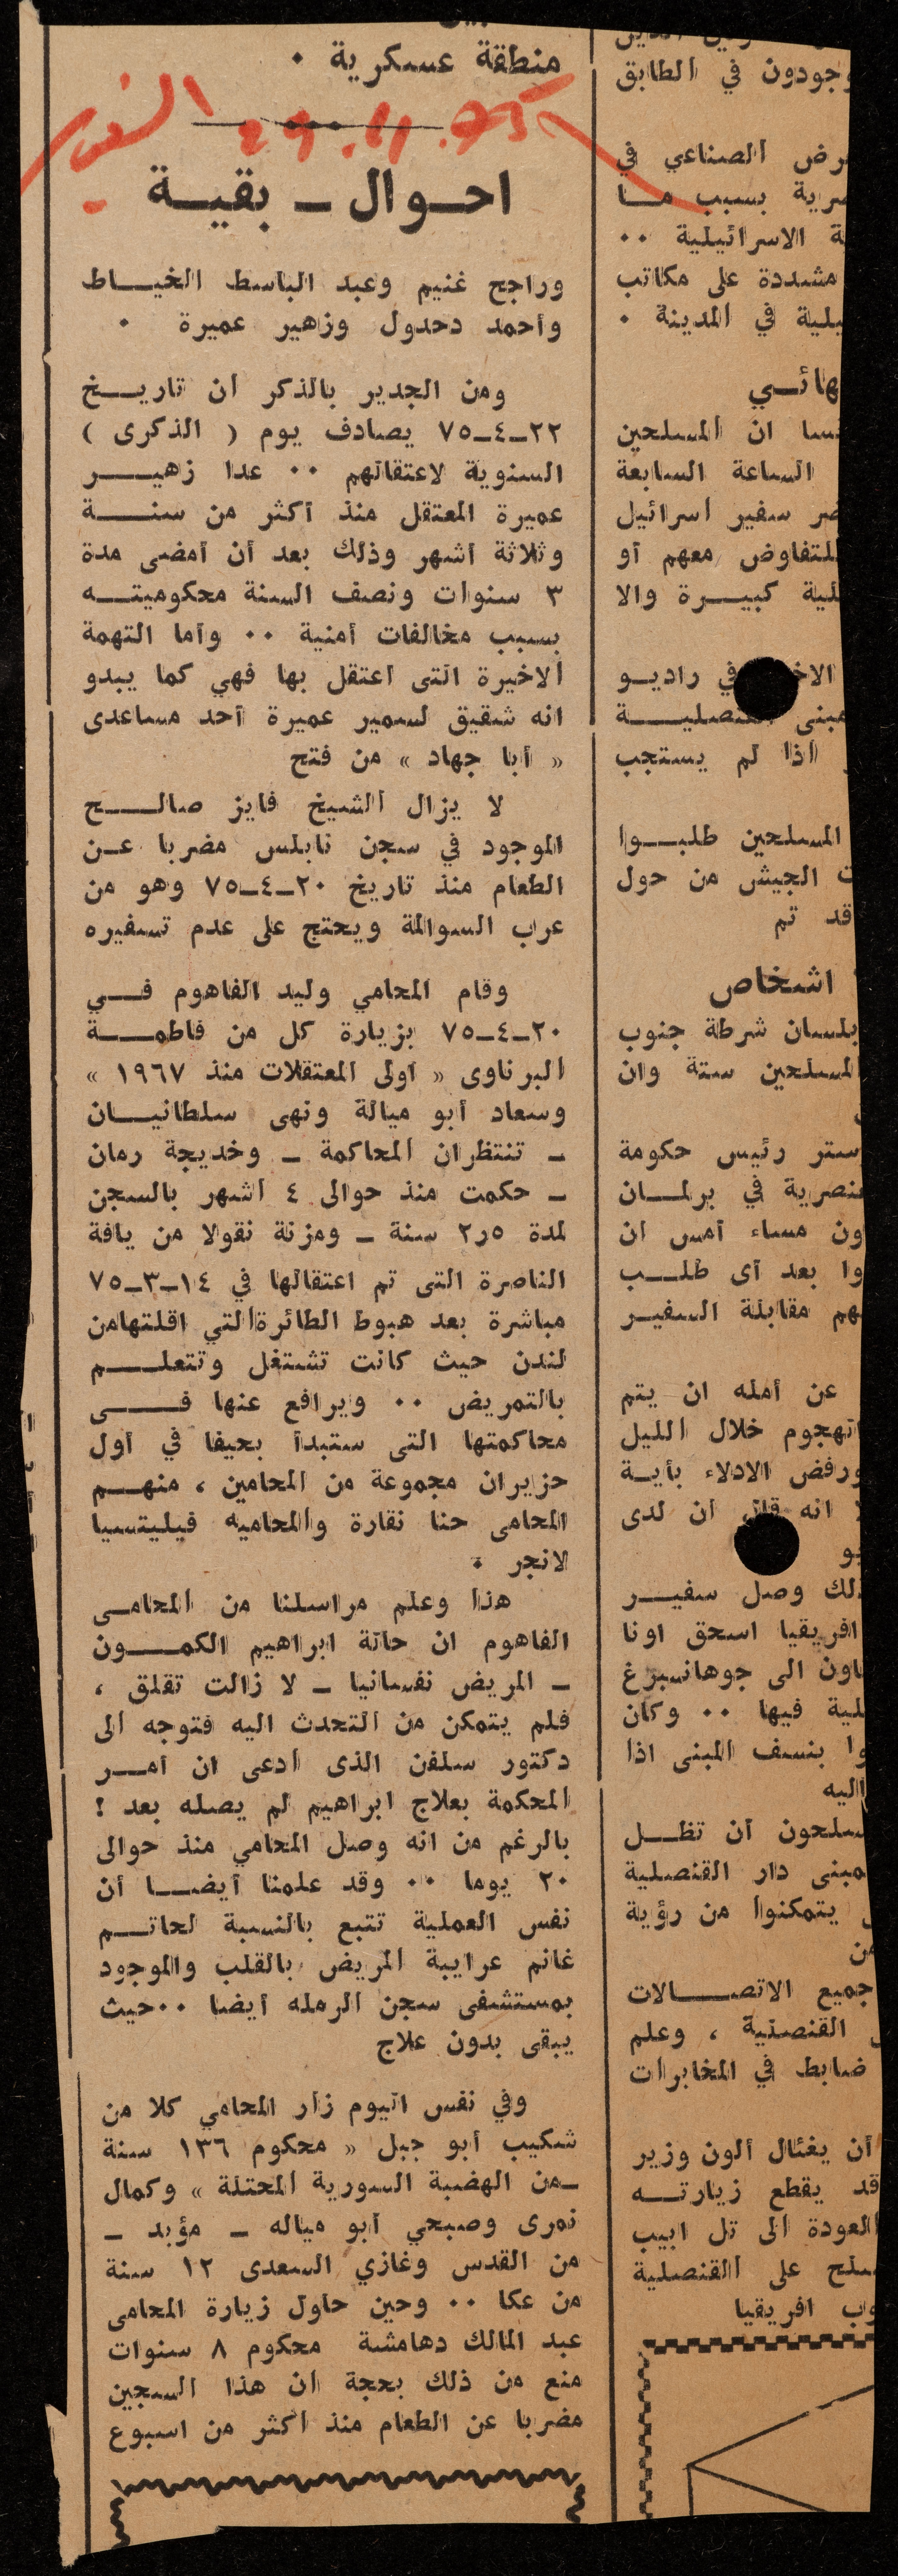 منطقة عسكرية ٠
احوال ـ بقية
وراجح غنيم وعبد الباسط الخياط
وأحمد دحدول وزهير عميرة ٠
ومن الجدير بالذكر ان تاريخ
٢٢ـ٤ـ٧٥ يصادف يوم ( الذكرى )
السنوية لاعتقالهم ٠٠ عدا زهير
عميرة المعتقل منذ أكثر من سنة
وثلاثة أشهر وذلك بعد أن أمضى مدة
٣ سنوات ونصف السنة محكوميته
بسبب مخالفات أمنية ٠٠ وأما التهمة
الاخيرة التى اعتقل بها فهي كما يبدو
انه شقيق لسمير عميرة أحد مساعدى
« أبا جهاد » من فتح
لا يزال الشيخ فايز صالح
الموجود في سجن نابلس مضربا عن
الطعام منذ تاريخ ٢٠ـ٤ـ٧٥ وهو من
عرب السوالمة ويحتج على عدم تسفيره
وقام المحامي وليد الفاهوم في
٢٠ـ٤ـ٧٥ بزيارة كل من فاطمة
البرناوى « أولى المعتقلات منذ ١٩٦٧ »
وسعاد أبو ميالة ونهى سلطانيان
ـ تنتظران المحاكمة ـ وخديجة رمان
ـ حكمت منذ حوالى ٤ اشهر بالسجن
لمدة ٢ر٥ سنة ـ ومزنة نقولا من يافة
الناصرة التى تم اعتقالها في ١٤ـ٣ـ٧٥
مباشرة بعد هبوط الطائرةالتي اقلتهامن
لندن حيث كانت تشتغل وتتعلم
بالتمريض ٠٠ ويرافع عنها فى
محاكمتها التى ستبدأ بحيفا في أول
حزيران مجموعة من المحامين ، منهم
المحامى حنا نقارة والمحاميه فيليتسيا
لانجر ٠
هذا وعلم مراسلنا من المحامى
الفاهوم ان حالة ابراهيم الكمون
ـ المريض نفسانيا ـ لا زالت تقلق ،
فلم يتمكن من التحدث اليه فتوجه الى
دكتور سلفن الذى ادعى ان أمر
المحكمة بعلاج ابراهيم لم يصله بعد !
بالرغم من انه وصل المحامي منذ حوالى
٢٠ يوما ٠٠ وقد علمنا أيضا أن
نفس العملية تتبع بالنسبة لحاتم
غانم عرايبة المريض بالقلب والموجود
بمستشفى سجن الرمله أيضا ٠٠حيث
يبقى بدون علاج
وفي نفس اليوم زار المحامي كلا من
شكيب أبو جبل « محكوم ١٣٦ سنة
ـمن الهضبة السورية المحتلة » وكمال
نمرى وصبحي أبو مياله ـ مؤبد ـ
من القدس وغازي السعدى ١٢ سنة
من عكا ٠٠ وحين حاول زيارة المحامى
عبد المالك دهامشة محكوم ٨ سنوات
منع من ذلك بحجة ان هذا السجين
مضربا عن الطعام منذ اكثر من اسبوع
وجودون في الطابق
الصناعي في
بسبب ما
الاسرائيلية ٠٠
مشددة على مكاتب
في المدينة ٠
ان المسلحين
الساعة السابعة
سفير اسرائيل
للتفاوض معهم أو
كبيرة والا
في راديو
مبنى القنصلية
اذا لم يستجب
المسلحين طلبوا
الجيش من حول
قد تم
اشخاص
بلسان شرطة جنوب
المسلحين ستة وان
رئيس حكومة
في برلمان
مساء أمس ان
بعد أى طلب
مقابلة السفير
عن أمله ان يتم
الهجوم خلال الليل
ورفض الادلاء بأية
انه قال ان لدى
ذلك وصل سفير
افريقيا اسحق اونا
الى جوهانسبرغ
فيها ٠٠ وكان
بنسف المبنى اذا
اليه
أن تظل
مبنى دار القنصلية
يتمكنوا من رؤية
جميع الاتصالات
القنصلية ، وعلم
ضابط في المخابرات
أن يغئال ألون وزير
قد يقطع زيارته
العودة الى تل ابيب
على القنصلية
افريقيا